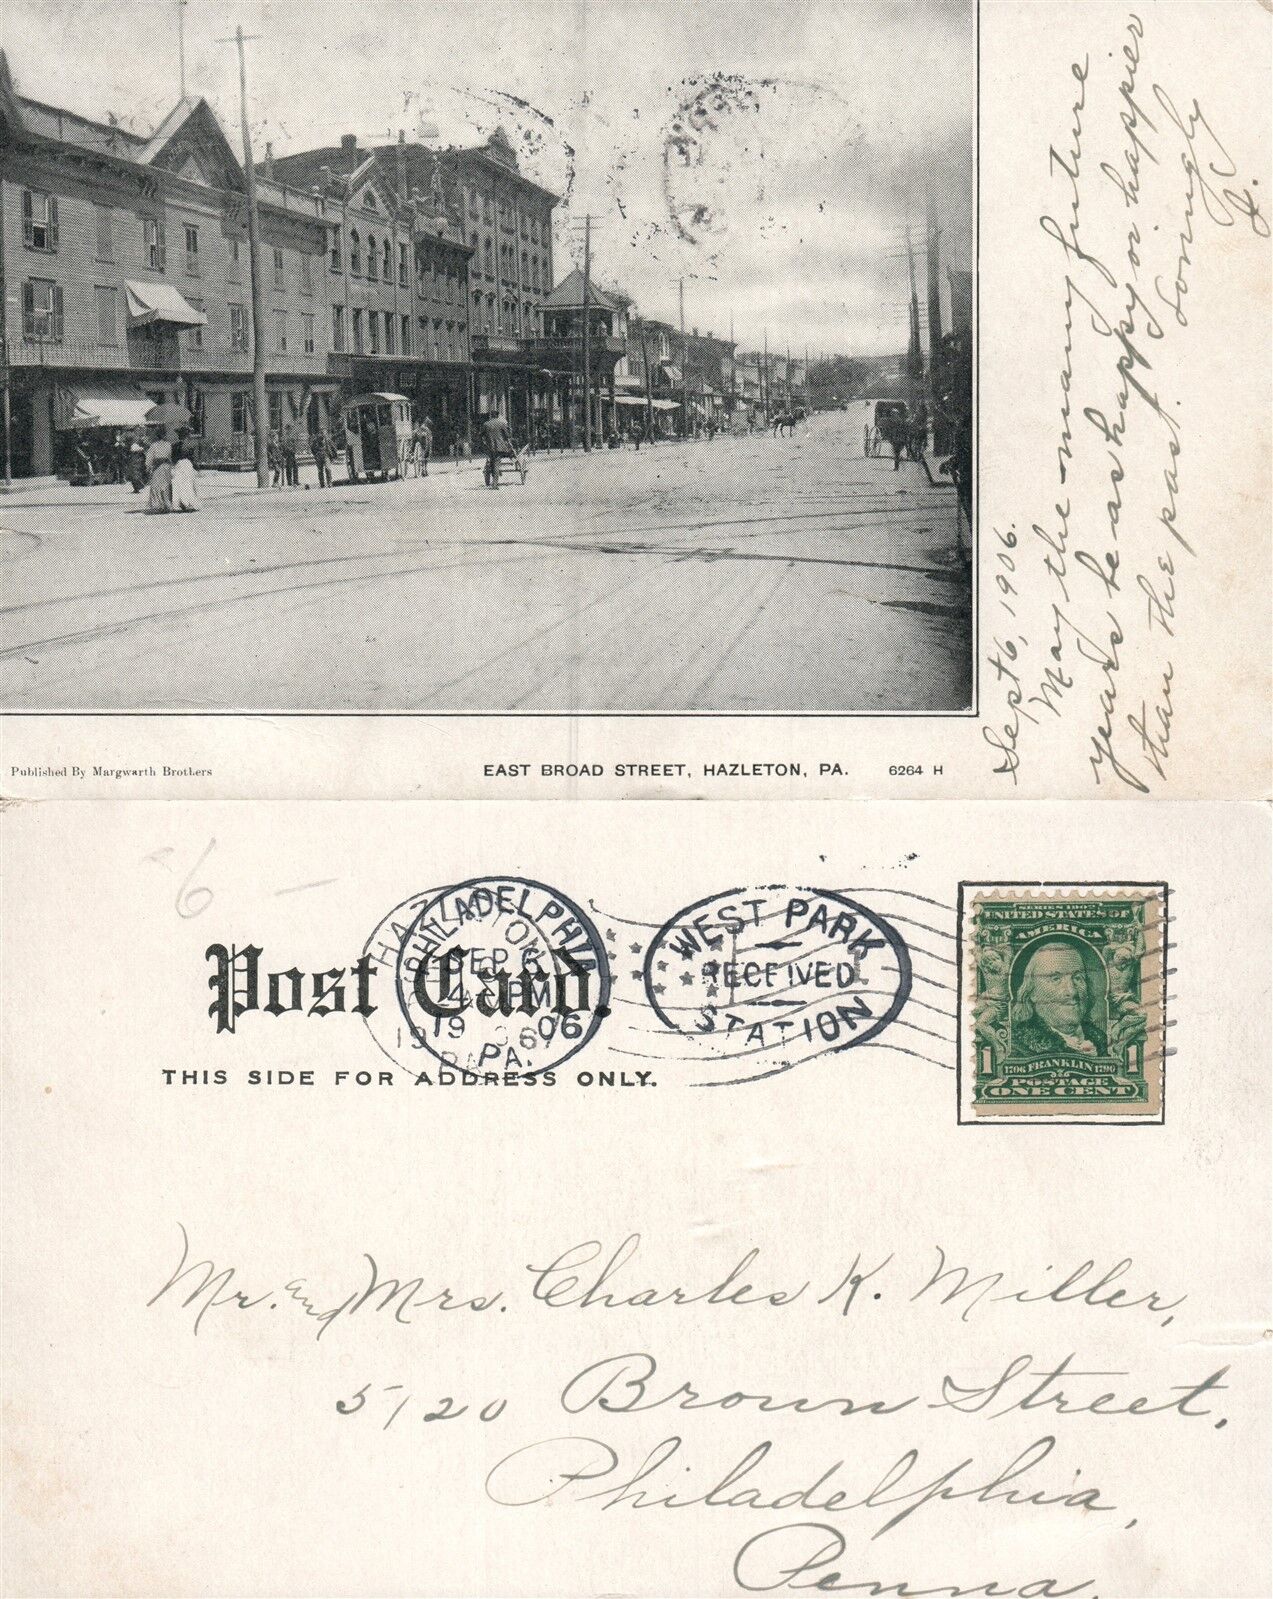 Sept 6, 1906.
May the many future
years be as happy or happier
than the past. Lovingly
J.
Published By Margwarth Brothers
EAST BROAD STREET, HAZLETON, PA. 6264 H
6 -
Post Card.
THIS SIDE FOR ADDRESS ONLY.
HAZLETON
PA.
PHILADELPHIA
SEP 6
4 PM
1906
PA.
WEST PARK
RECEIVED
STATION
SERIES 1902
UNITED STATES OF
AMERICA
1 1
1706 FRANKLIN 1790
POSTAGE
ONE CENT
Mr. and Mrs. Charles K. Miller,
5120 Brown Street,
Philadelphia,
Penna.